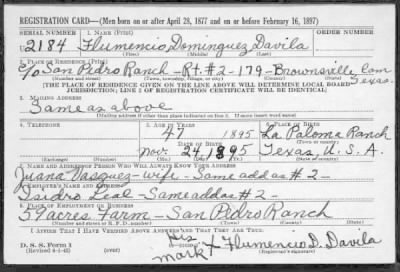 REGISTRATION CARD—(Men born on or after April 28, 1877 and on or before February 16, 1897)
SERIAL NUMBER 1. NAME (Print) ORDER NUMBER
2184 Flumencio Dominguez Davila
(First) (Middle) (Last)
2. PLACE OF RESIDENCE (Print)
% San Pedro Ranch - Rt. #2 - 179 - Brownsville, Cam
Texas.
(Number and street) (Town, township, village, or city) (County) (State)
[THE PLACE OF RESIDENCE GIVEN ON THE LINE ABOVE WILL DETERMINE LOCAL BOARD
JURISDICTION; LINE 2 OF REGISTRATION CERTIFICATE WILL BE IDENTICAL]
3. MAILING ADDRESS
Same as above
[Mailing address if other than place indicated on line 2. If same insert word same]
4. TELEPHONE 5. AGE IN YEARS 6. PLACE OF BIRTH
1895 La Paloma Ranch
DATE OF BIRTH (Town or county)
Nov. 24 1895 Texas, U.S.A.
(Exchange) (Number) (Mo.) (Day) (Yr.) (State or country)
7. NAME AND ADDRESS OF PERSON WHO WILL ALWAYS KNOW YOUR ADDRESS
Juana Vasquez - wife - Same add as #2 -
8. EMPLOYER'S NAME AND ADDRESS
Isidro Leal - Same add as #2 -
9. PLACE OF EMPLOYMENT OR BUSINESS
59 acres Farm - San Pedro Ranch
(Number and street or R. F. D. number) (Town) (County) (State)
I AFFIRM THAT I HAVE VERIFIED ABOVE ANSWERS AND THAT THEY ARE TRUE.
D. S. S. Form 1 his
(Revised 4-1-42) mark X Flumencio D. Davila